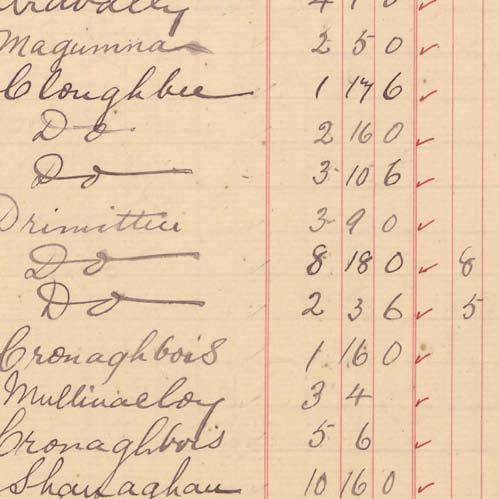 Magumna 2 5 0 ✓
Cloughbee 1 17 6 ✓
Do 2 16 0 ✓
Do 3 10 6 ✓
Drimittee 3 9 0 ✓
Do 8 18 0 ✓ 8
Do 2 3 6 ✓ 5
Cronaghbois 1 16 0 ✓
Mullinacloy 3 4 ✓
Cronaghbois 5 6 ✓
Shanaghan 10 16 0 ✓